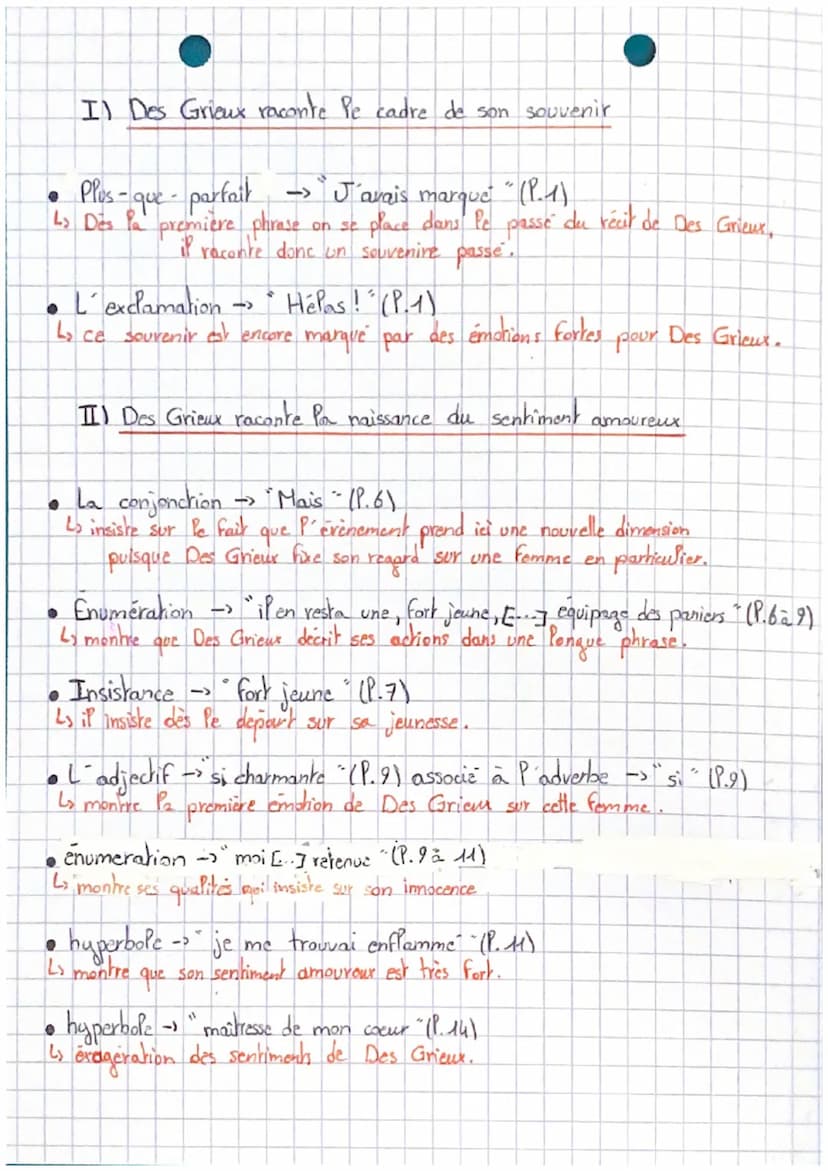 I) Des Grieux raconte le cadre de son souvenir
• Plus-que-parfait -> "J'avais marqué" (l.1)
↳ Dès la première phrase on se place dans le passé du récit de Des Grieux,
il raconte donc un souvenire passé.
• L'exclamation -> "Hélas !" (l.1)
↳ ce souvenir est encore marqué par des émotions fortes pour Des Grieux.
II) Des Grieux raconte la naissance du sentiment amoureux
• La conjonction -> "Mais" (l.6)
↳ insiste sur le fait que l'évènement prend ici une nouvelle dimension
puisque Des Grieux fixe son regard sur une femme en particulier.
• Énumération -> "il en resta une, fort jeune, [...] équipage des paniers" (l.6 à 9)
↳ montre que Des Grieux décrit ses actions dans une longue phrase.
• Insistance -> "fort jeune" (l.7)
↳ il insiste dès le départ sur sa jeunesse.
• L'adjectif -> "si charmante" (l.9) associé à l'adverbe -> "si" (l.9)
↳ montre la première émotion de Des Grieux sur cette femme.
• énumeration -> "moi [..] retenue" (l.9 à 11)
↳ montre ses qualités insiste sur son innocence
• hyperbole -> "je me trouvai enflammé" (l.11)
↳ montre que son sentiment amouroux est très fort.
• hyperbole -> "maîtresse de mon coeur" (l.14)
↳ éxagération des sentiments de Des Grieux.